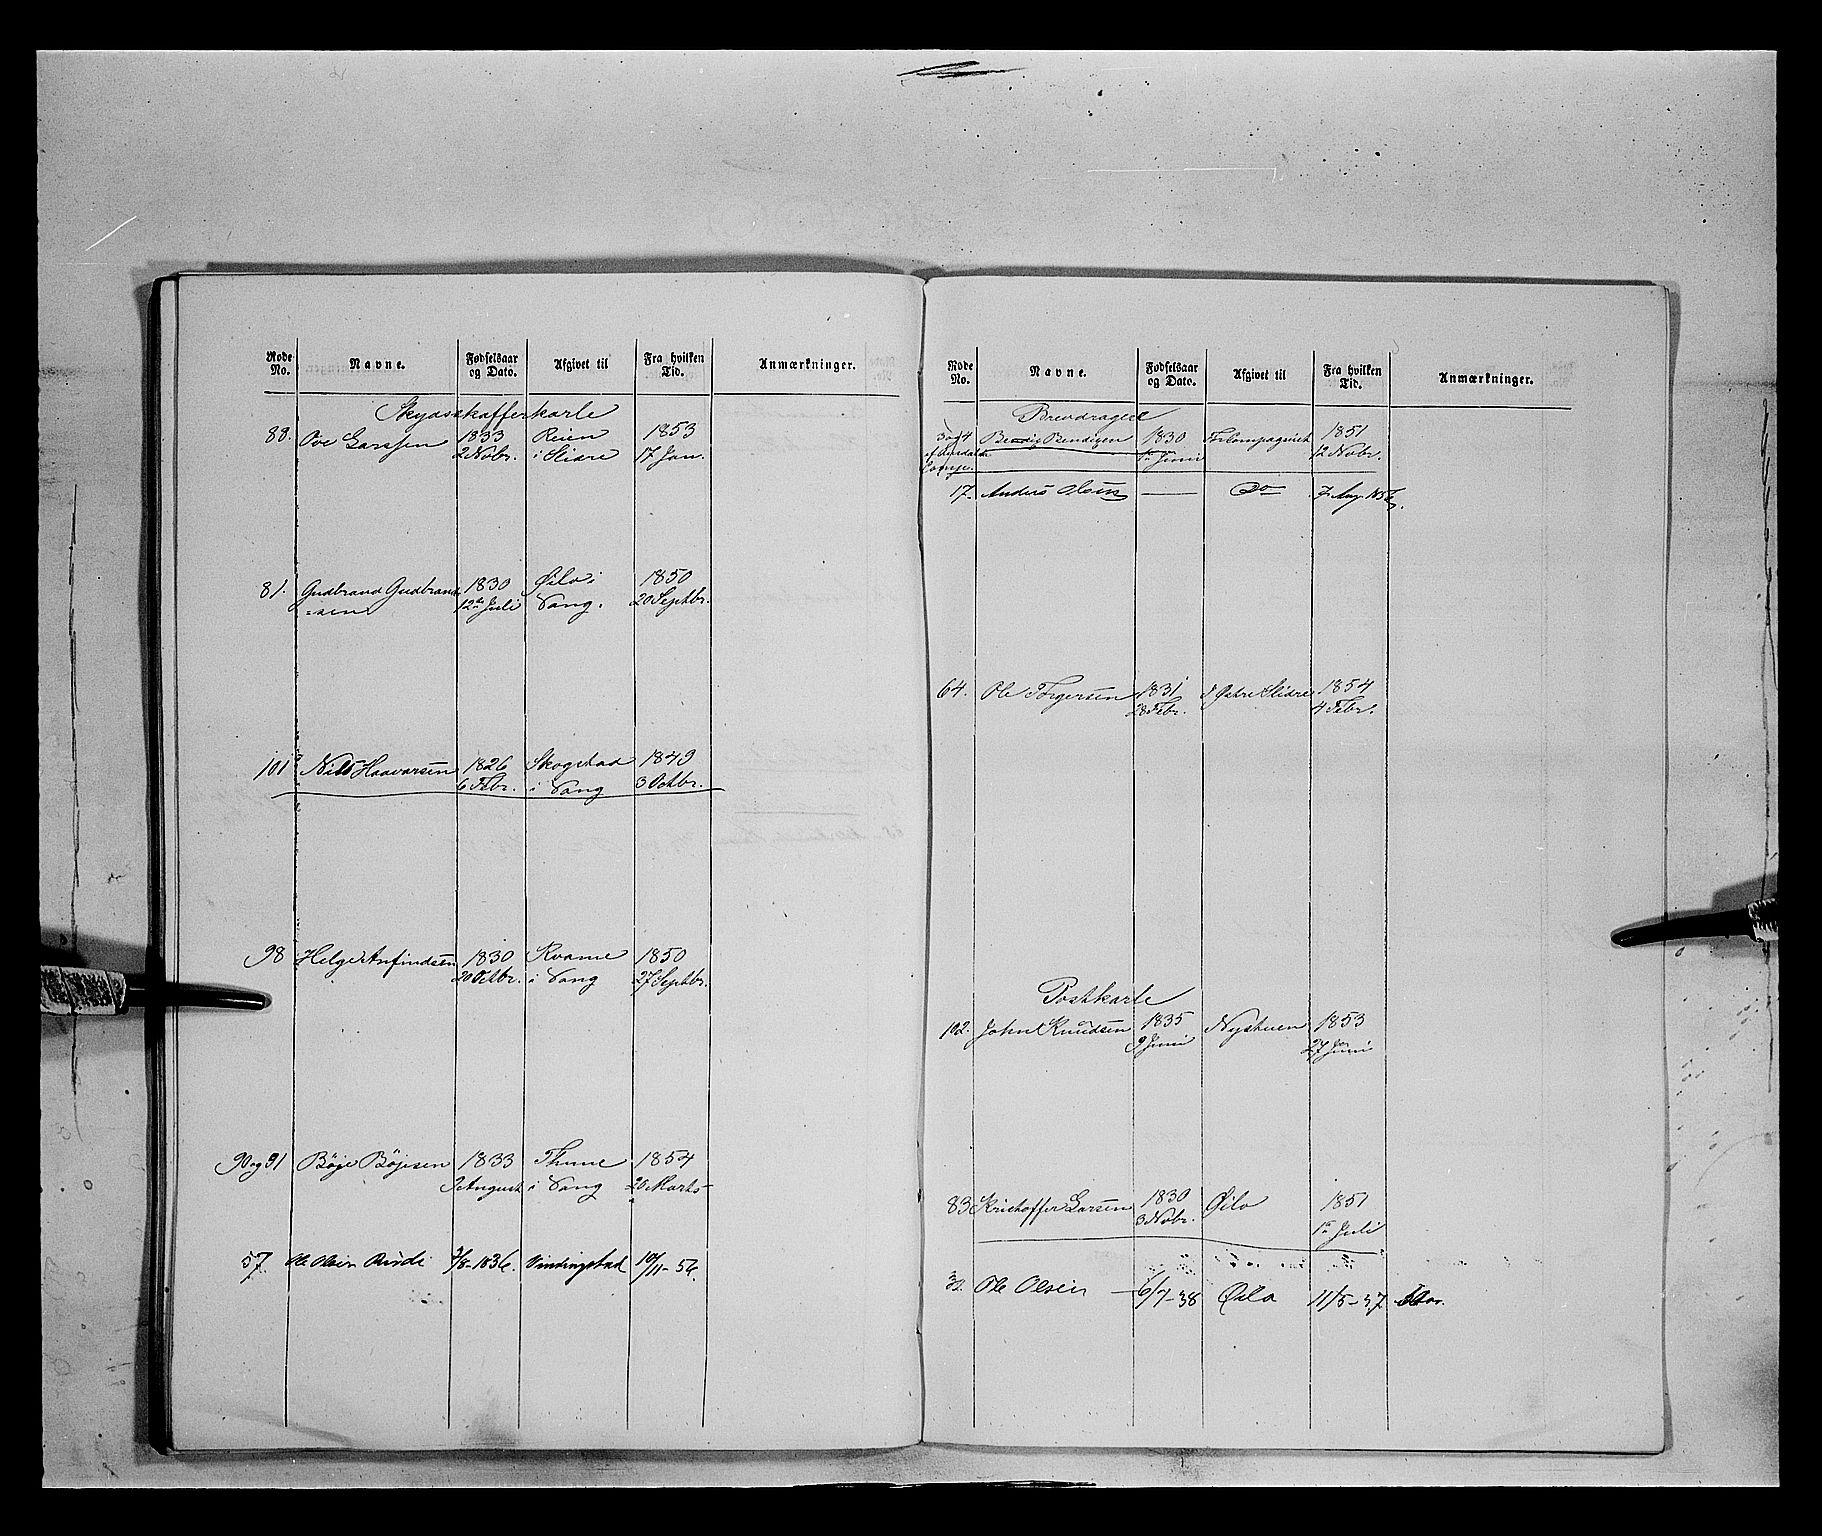 Rode No. Navne. Fødselsaar og Dato. Afgivet til Fra hvilken Tid. Anmærkninger.
Skydsskafferkarle
88. Ove Larssen 1833 Reien 1853
2 Nobr. i Slidre 17 Jan.
81. Gudbrand Gudbrand 1830 Øilo i 1850
=sen 12te Juli Vang. 20 Septbr.
101 Nils Haavarsen 1826 Skogstad 1849
6 Febr. i Vang 3 Octbr.
98 Helge Anfindsen 1830 Kvame 1850
20 Octbr. i Vang 27 Septbr.
90 og 91 Bøje Bøjesen 1833 Thune 1854
9 August i Vang 20 Marts
57. Ole Olsen 3/8-1836. Vindingstad 10/11-56.
Rode No. Navne. Fødselsaar og Dato. Afgivet til Fra hvilken Tid. Anmærkninger.
Brevdragere
3 og 4 Bendig Bendigen 1830 Trlompagniet 1851
af 1ste Juni 12 Nobr.
Compe.
17. Anders Olsen — Do 7 Aug 1856.
64. Ole Torgersen 1831 i Østre Slidre 1854
28 Febr. 4 Febr.
Postkarle
102. John Knudsen 1835 Nystuen 1853
9 Juni 27 Juni
83 Kristoffer Larsen 1830 Øilo 1851
3 Nobr. 1ste Juli
32. Ole Olsen — 6/7-38 Øilo 11/5-57